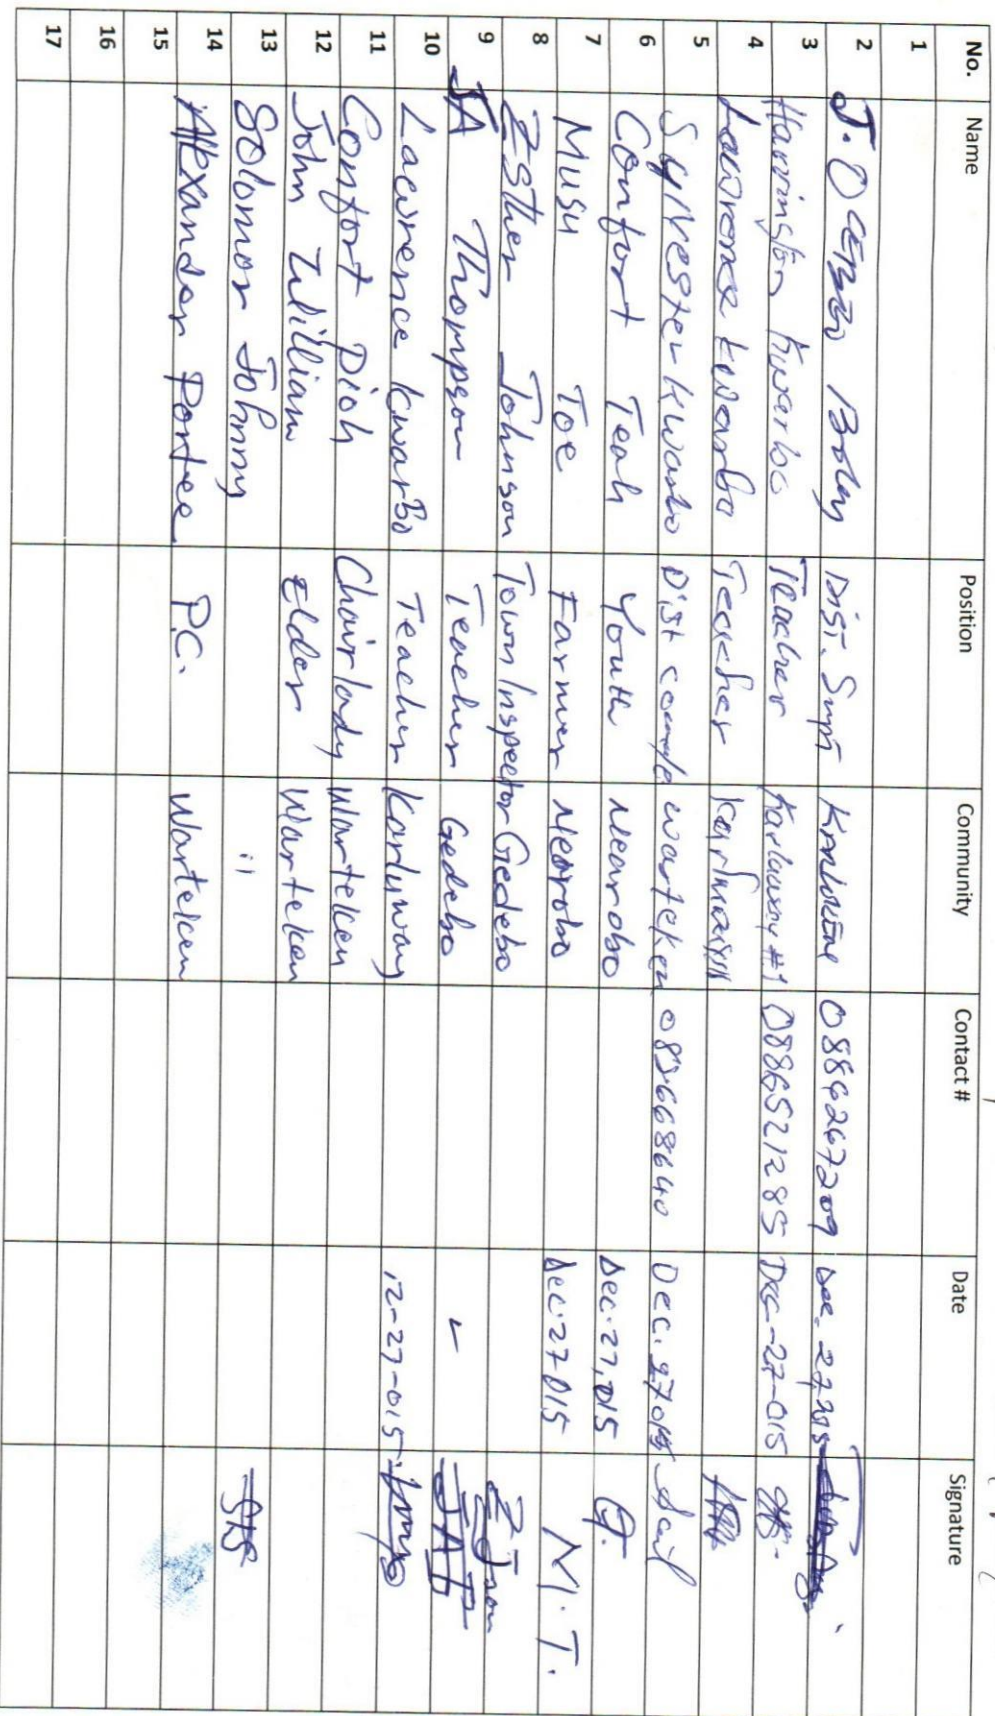 No. Name Position Community Contact # Date Signature
1
2 J. Boley Dist. Supt 0886267209 Dec. 27,
3 Harrington Kwarbo Teacher Karluway #1 0886521285 Dec-27-015
4 Lawrence Kwarbo Teacher
5 Sylvester Kwarbo Dist Warteken Dec. 27
6 Comfort Teah Youth Nearobo Dec. 27, 015
7 Musu Toe Farmer Neorobo Dec. 27 015 M.T.
8 Esther Johnson Town Inspector Gedebo
9 JA Thompson Teacher Gedebo JAT
10 Lawrence KwarBo Teacher Karluway 12-27-015
11 Comfort Dioh Chairlady Warteken
12 John William Elder Warteken
13 Solomon Johnny "
14 Alexander Portee P.C. Warteken
15
16
17